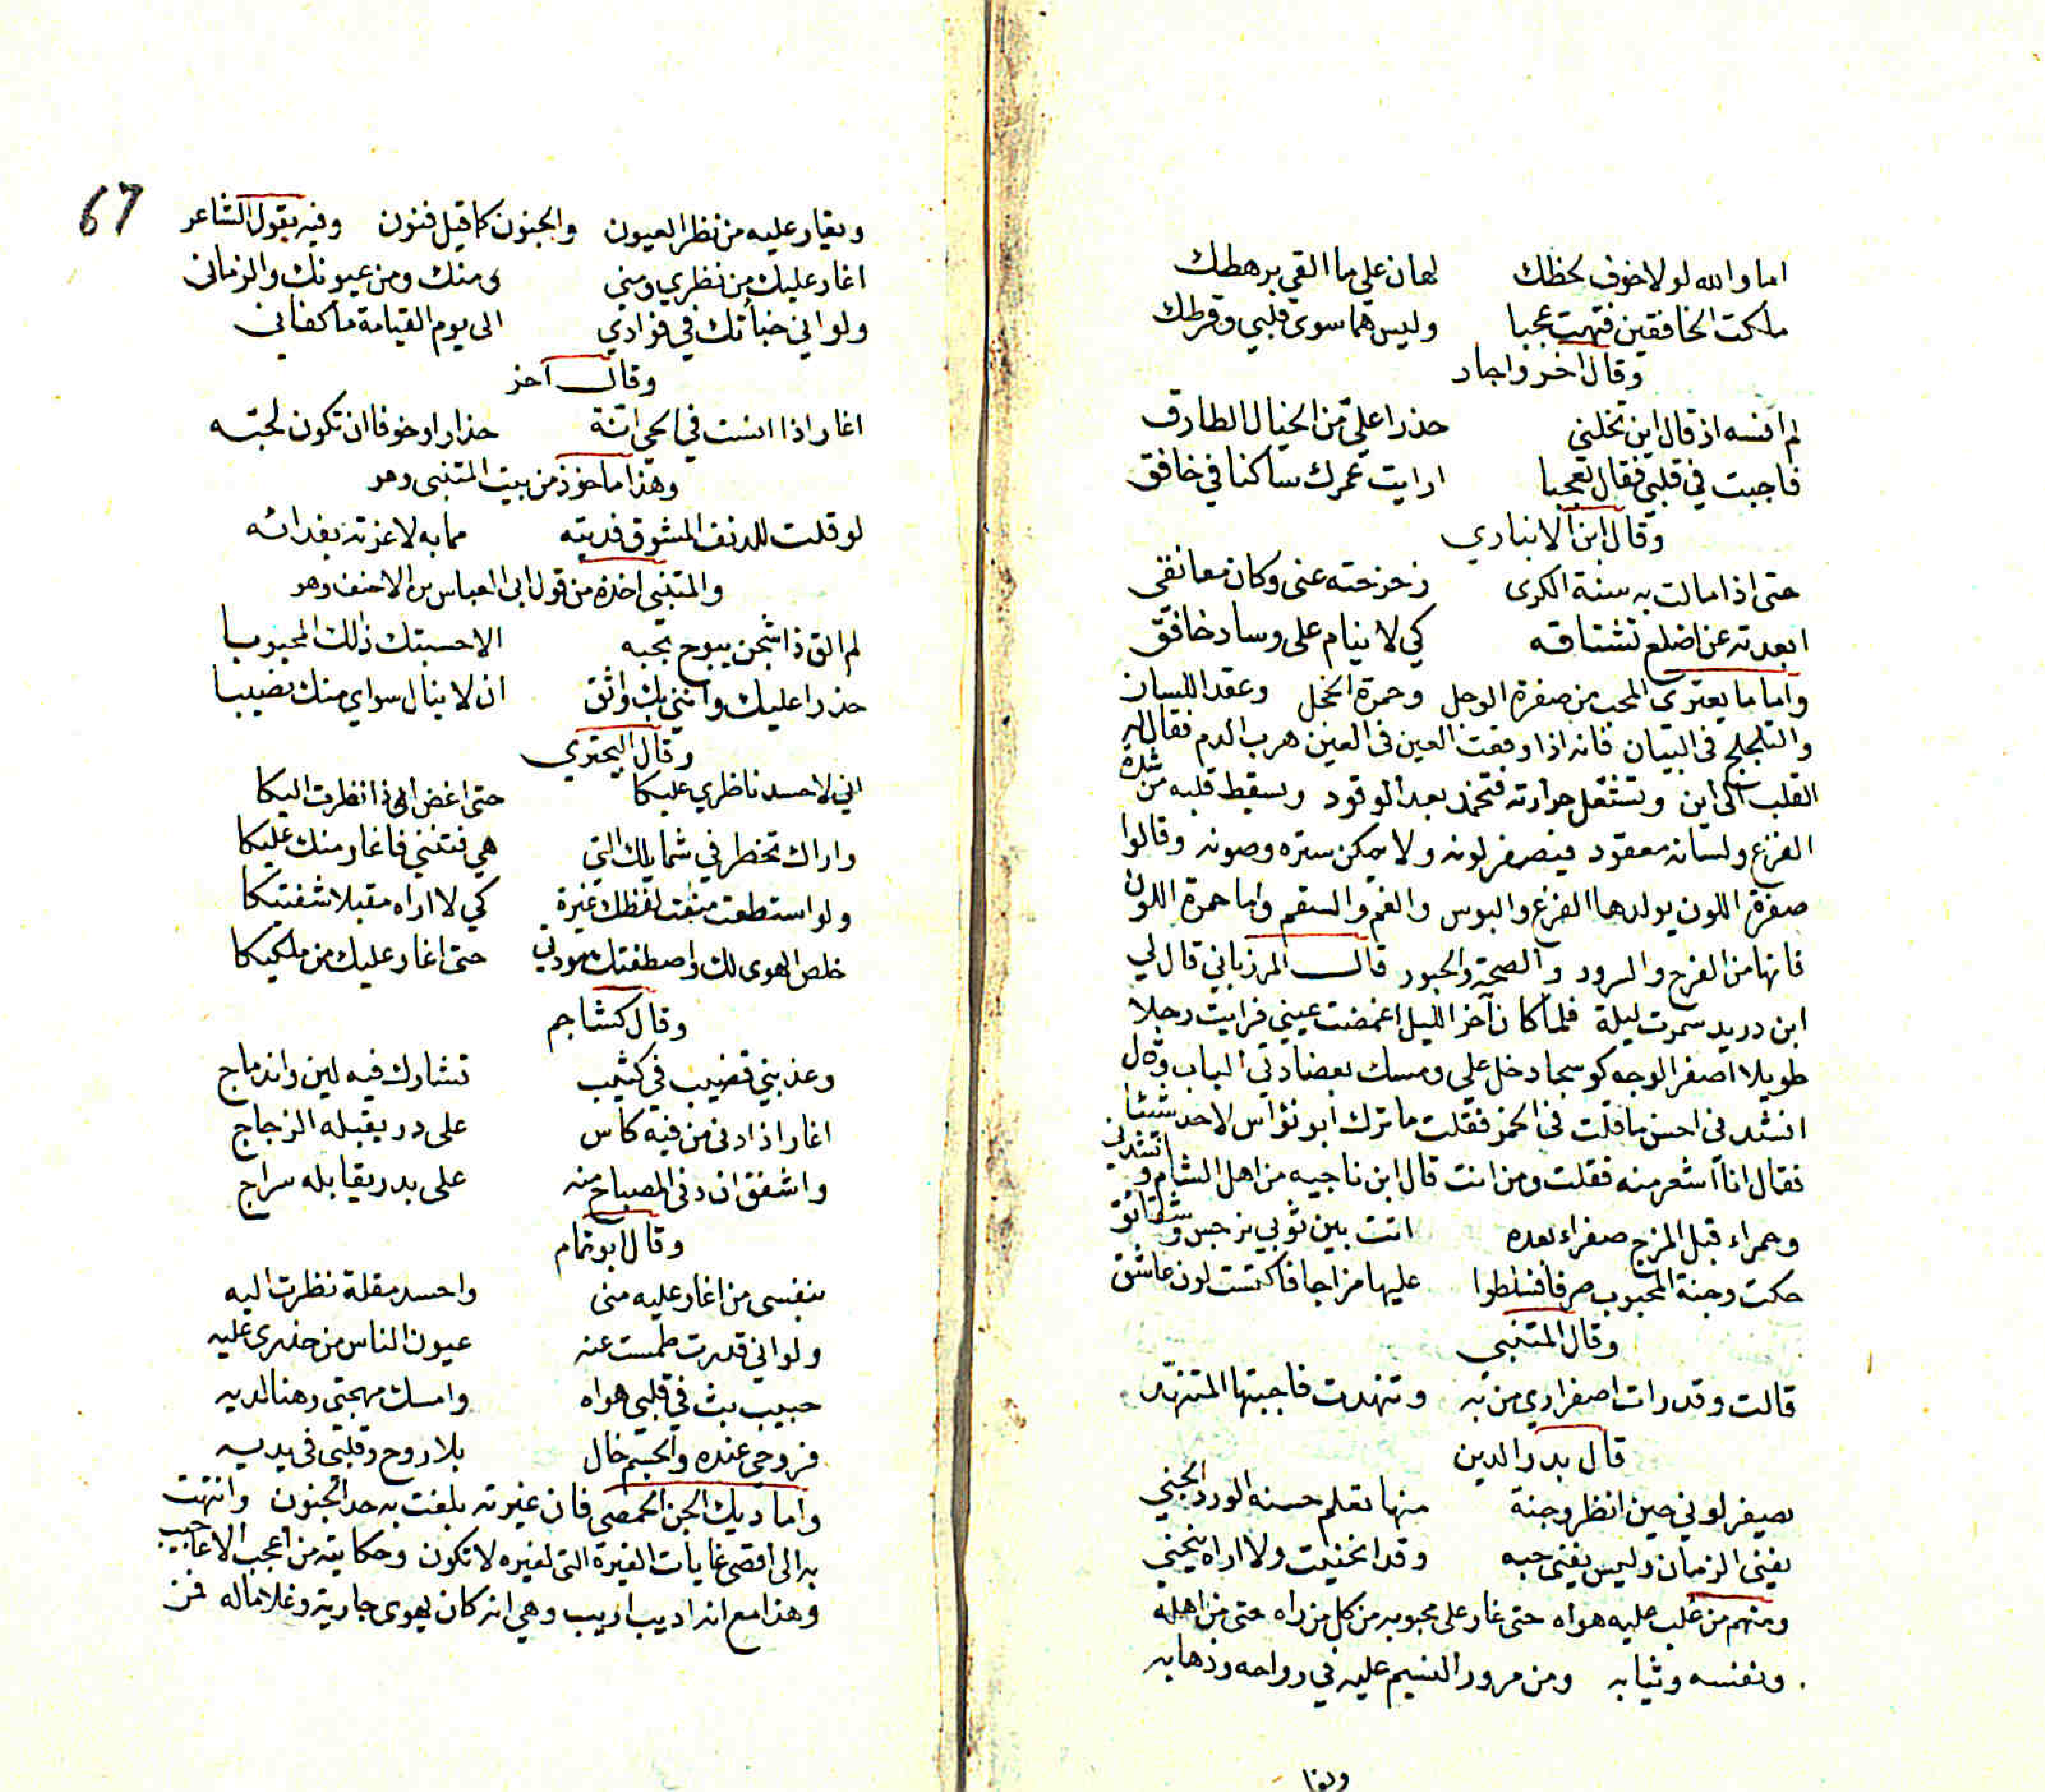 اما والله لولا خوف لحظك لهان علي ما القي برهطك
ملكت الخافقين فتهت عجبا وليس هما سوى قلبي وقرطك
وقال اخر واجاد
لم انسه اذ قال اين تحلني حذرا علي من الخيال الطارق
فاجبت في قلبي فقال تعجبا ارايت عمرك ساكنا في خافق
وقال ابن الانباري
حتى اذا مالت به سنة الكرى زحزحته عني وكان معانقي
ابعدته عن اضلع تشتاقه كي لا ينام على وساد خافق
واما ما يعتري المحب من صفرة الوجل وحمرة الخجل وعقد اللسان
والتلجلج في البيان فانه اذا وقعت العين في العين هرب الدم فقال له
القلب الى اين وتشتعل حرارته فتخمد بعد الوقود ويسقط قلبه من شدة
الفزع ولسانه معقود فيصفر لونه ولا يمكن ستره وصونه وقالوا
صفرة اللون يولدها الفزع والبوس والغم والسقم واما حمرة اللون
فانها من الفرح والسرور والصحة والحبور قال المرزباني قال لي
ابن دريد سمرت ليلة فلما كان آخر الليل اغمضت عيني فرايت رجلا
طويلا اصفر الوجه كوسجا دخل علي ومسك بعضادتي الباب وقال
انشدني احسن ما قلت في الخمر فقلت ما ترك ابو نؤاس لاحد شيئا
فقال انا اشعر منه فقلت ومن انت قال ابن ناجيه من اهل الشام وانشدني
وحمراء قبل المزج صفراء بعده اتت بين ثوبي نرجس وشقائق
حكت وجنة المحبوب صرفا فسلطوا عليها مزاجا فاكتست لون عاشق
وقال المتنبي
قالت وقد رات اصفراري من به وتنهدت فاجبتها المتنهد
قال بدر الدين
يصفر لوني حين انظر وجنة منها تعلم حسنه الورد الجني
يفنى الزمان وليس يفنى حبه وقد انحنيت ولا اراه ينحني
ومنهم من غلب عليه هواه حتى غار على محبوبه من كل من راه حتى من اهله
ونفسه وثيابه ومن مرور النسيم عليه في رواحه وذهابه
ويغار
67
ويغار عليه من نظر العيون والجنون كما قيل فنون وفيه يقول الشاعر
اغار عليك من نظري ومني ومنك ومن عيونك والزمان
ولو اني خبأتك في فؤادي الى يوم القيامة ما كفاني
وقال آخر
اغار اذا انست في الحي انة حذارا وخوفا ان تكون لحبه
وهذا ماخوذ من بيت المتنبي وهو
لو قلت للدنف المشوق فديته مما به لاغرته بفدائه
والمتنبي اخذه من قول ابي العباس بن الاحنف وهو
لم الق ذا شجن يبوح بحبه الا حسبتك ذلك المحبوبا
حذرا عليك وانني بك واثق ان لا ينال سواي منك نصيبا
وقال البحتري
اني لاحسد ناظري عليكا حتى اغض اذا نظرت اليكا
واراك تخطر في شمايلك التي هي فتنتي فاغار منك عليكا
ولو استطعت منعت لفظك غيرة كي لا اراه مقبلا شفتيكا
خلص الهوى لك واصطفتك مودتي حتى اغار عليك من ملكيكا
وقال كشاجم
وعذبني قضيب في كثيب تشارك فيه لين واندماج
اغار اذا ادنى من فيه كاس على در يقبله الزجاج
واشفق ان دنى المصباح منه على بدر يقابله سراج
وقال ابو تمام
بنفسي من اغار عليه مني واحسد مقلة نظرت اليه
ولو اني قدرت طمست عنه عيون الناس من حذري عليه
حبيب بث في قلبي هواه وامسك مهجتي رهنا لديه
فروحي عنده والجسم خال بلا روح وقلبي في يديه
واما ديك الجن الحمصي فان غيرته بلغت به حد الجنون وانتهت
به الى اقصى غايات الغيرة التي لغيره لا تكون وحكايته من اعجب الاعاجيب
وهذا مع انه اديب اريب وهي انه كان يهوى جارية وغلاما له فمن